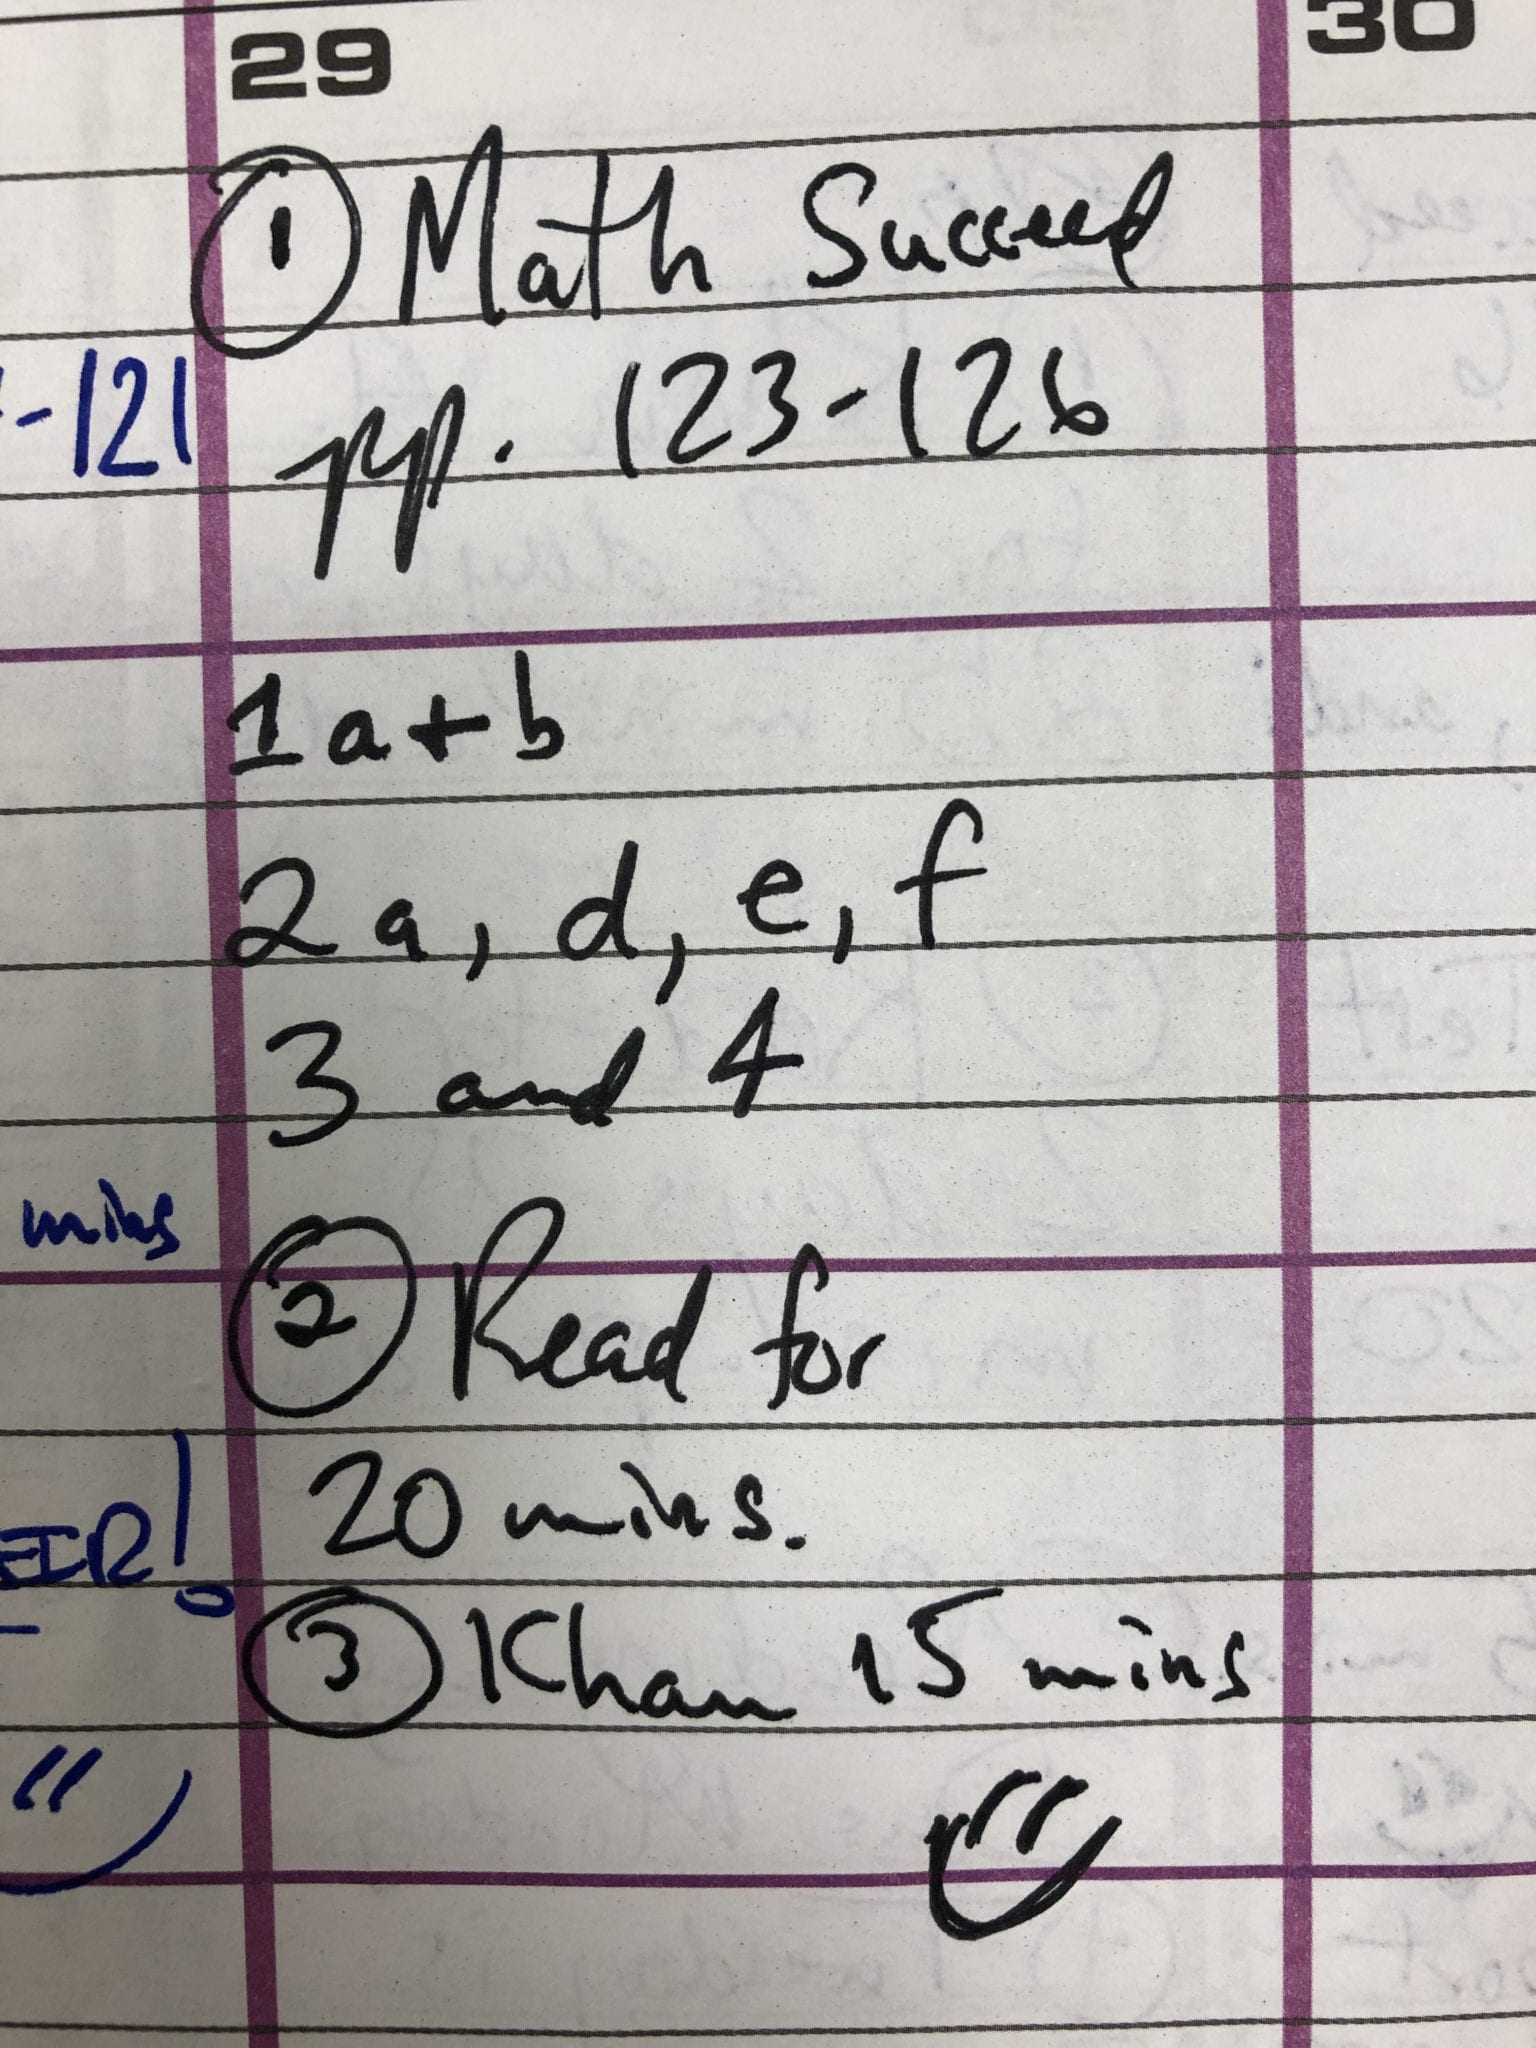 29
30
① Math Succeed
-121
pp. 123-126
1a+b
2a, d, e, f
3 and 4
mins
② Read for
20 mins.
EIR!
③ Khan 15 mins